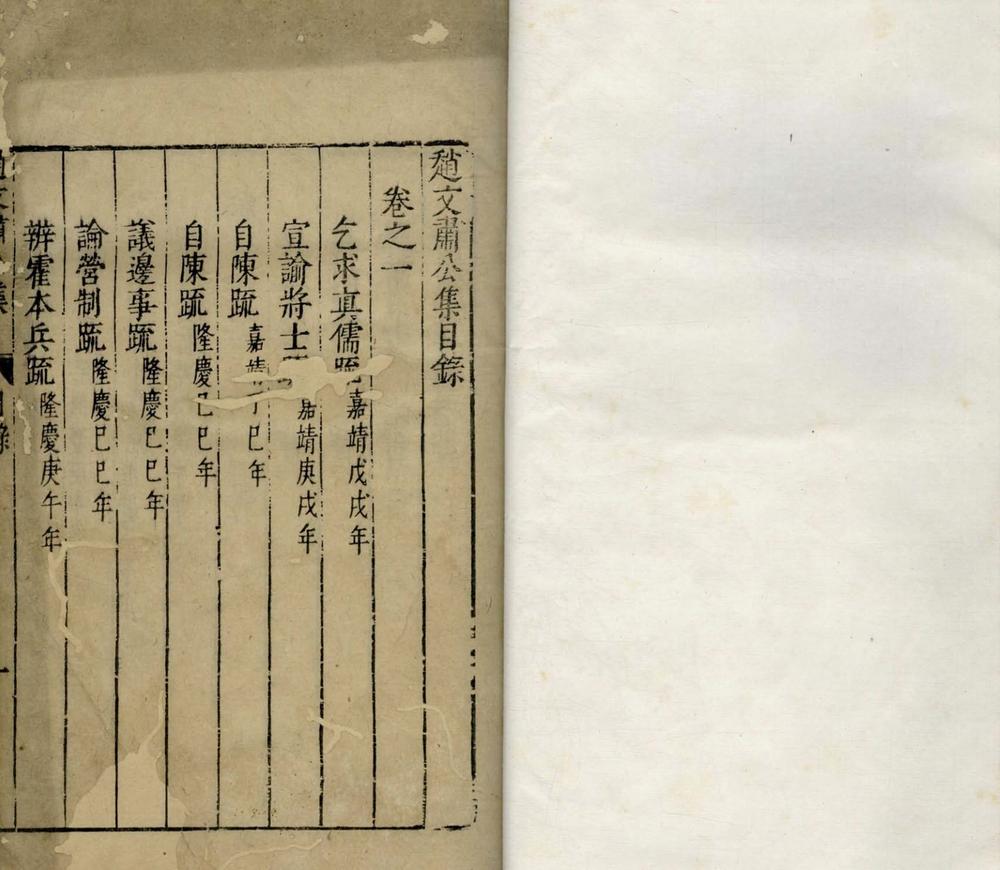 趙文肅公集目錄
卷之一
乞求真儒疏嘉靖戊戌年
宣諭將士嘉靖庚戌年
自陳疏嘉靖巳年
自陳疏隆慶巳巳年
議邊事疏隆慶巳巳年
論營制疏隆慶巳巳年
辨霍本兵疏隆慶庚午年